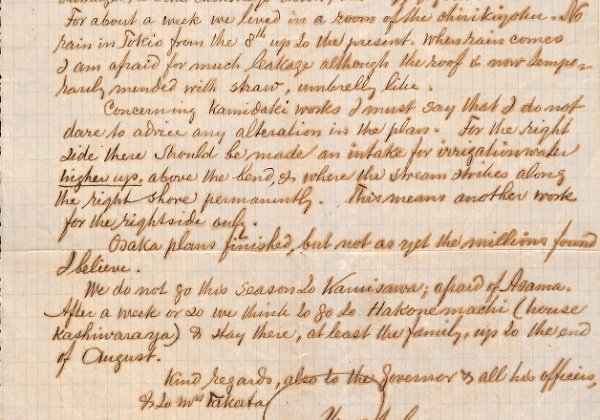 For about a week we lived in a room of the chirikiyoku. No
rain in Tokio from the 8th up to the present. When rain comes
I am afraid for much leakage although the roof is now tempo-
rarely mended with straw, umbrelly like.
Concerning Kamidaki works I must say that I do not
dare to advice any alteration in the plan. For the right
side there should be made an intake for irrigationwater
higher up, above the bend, & where the stream strikes along
the right shore permanently. This means another work
for the rightside only.
Osaka plans finished, but not as yet the millions found
I believe.
We do not go this season to Karuisawa; afraid of Asama.
After a week or so we think to go to Hakonemachi (house
Kashiwaraya) & stay there, at least the family, up to the end
of August.
Kind regards, also to the Governor & all his officers,
& to Mrs Takata